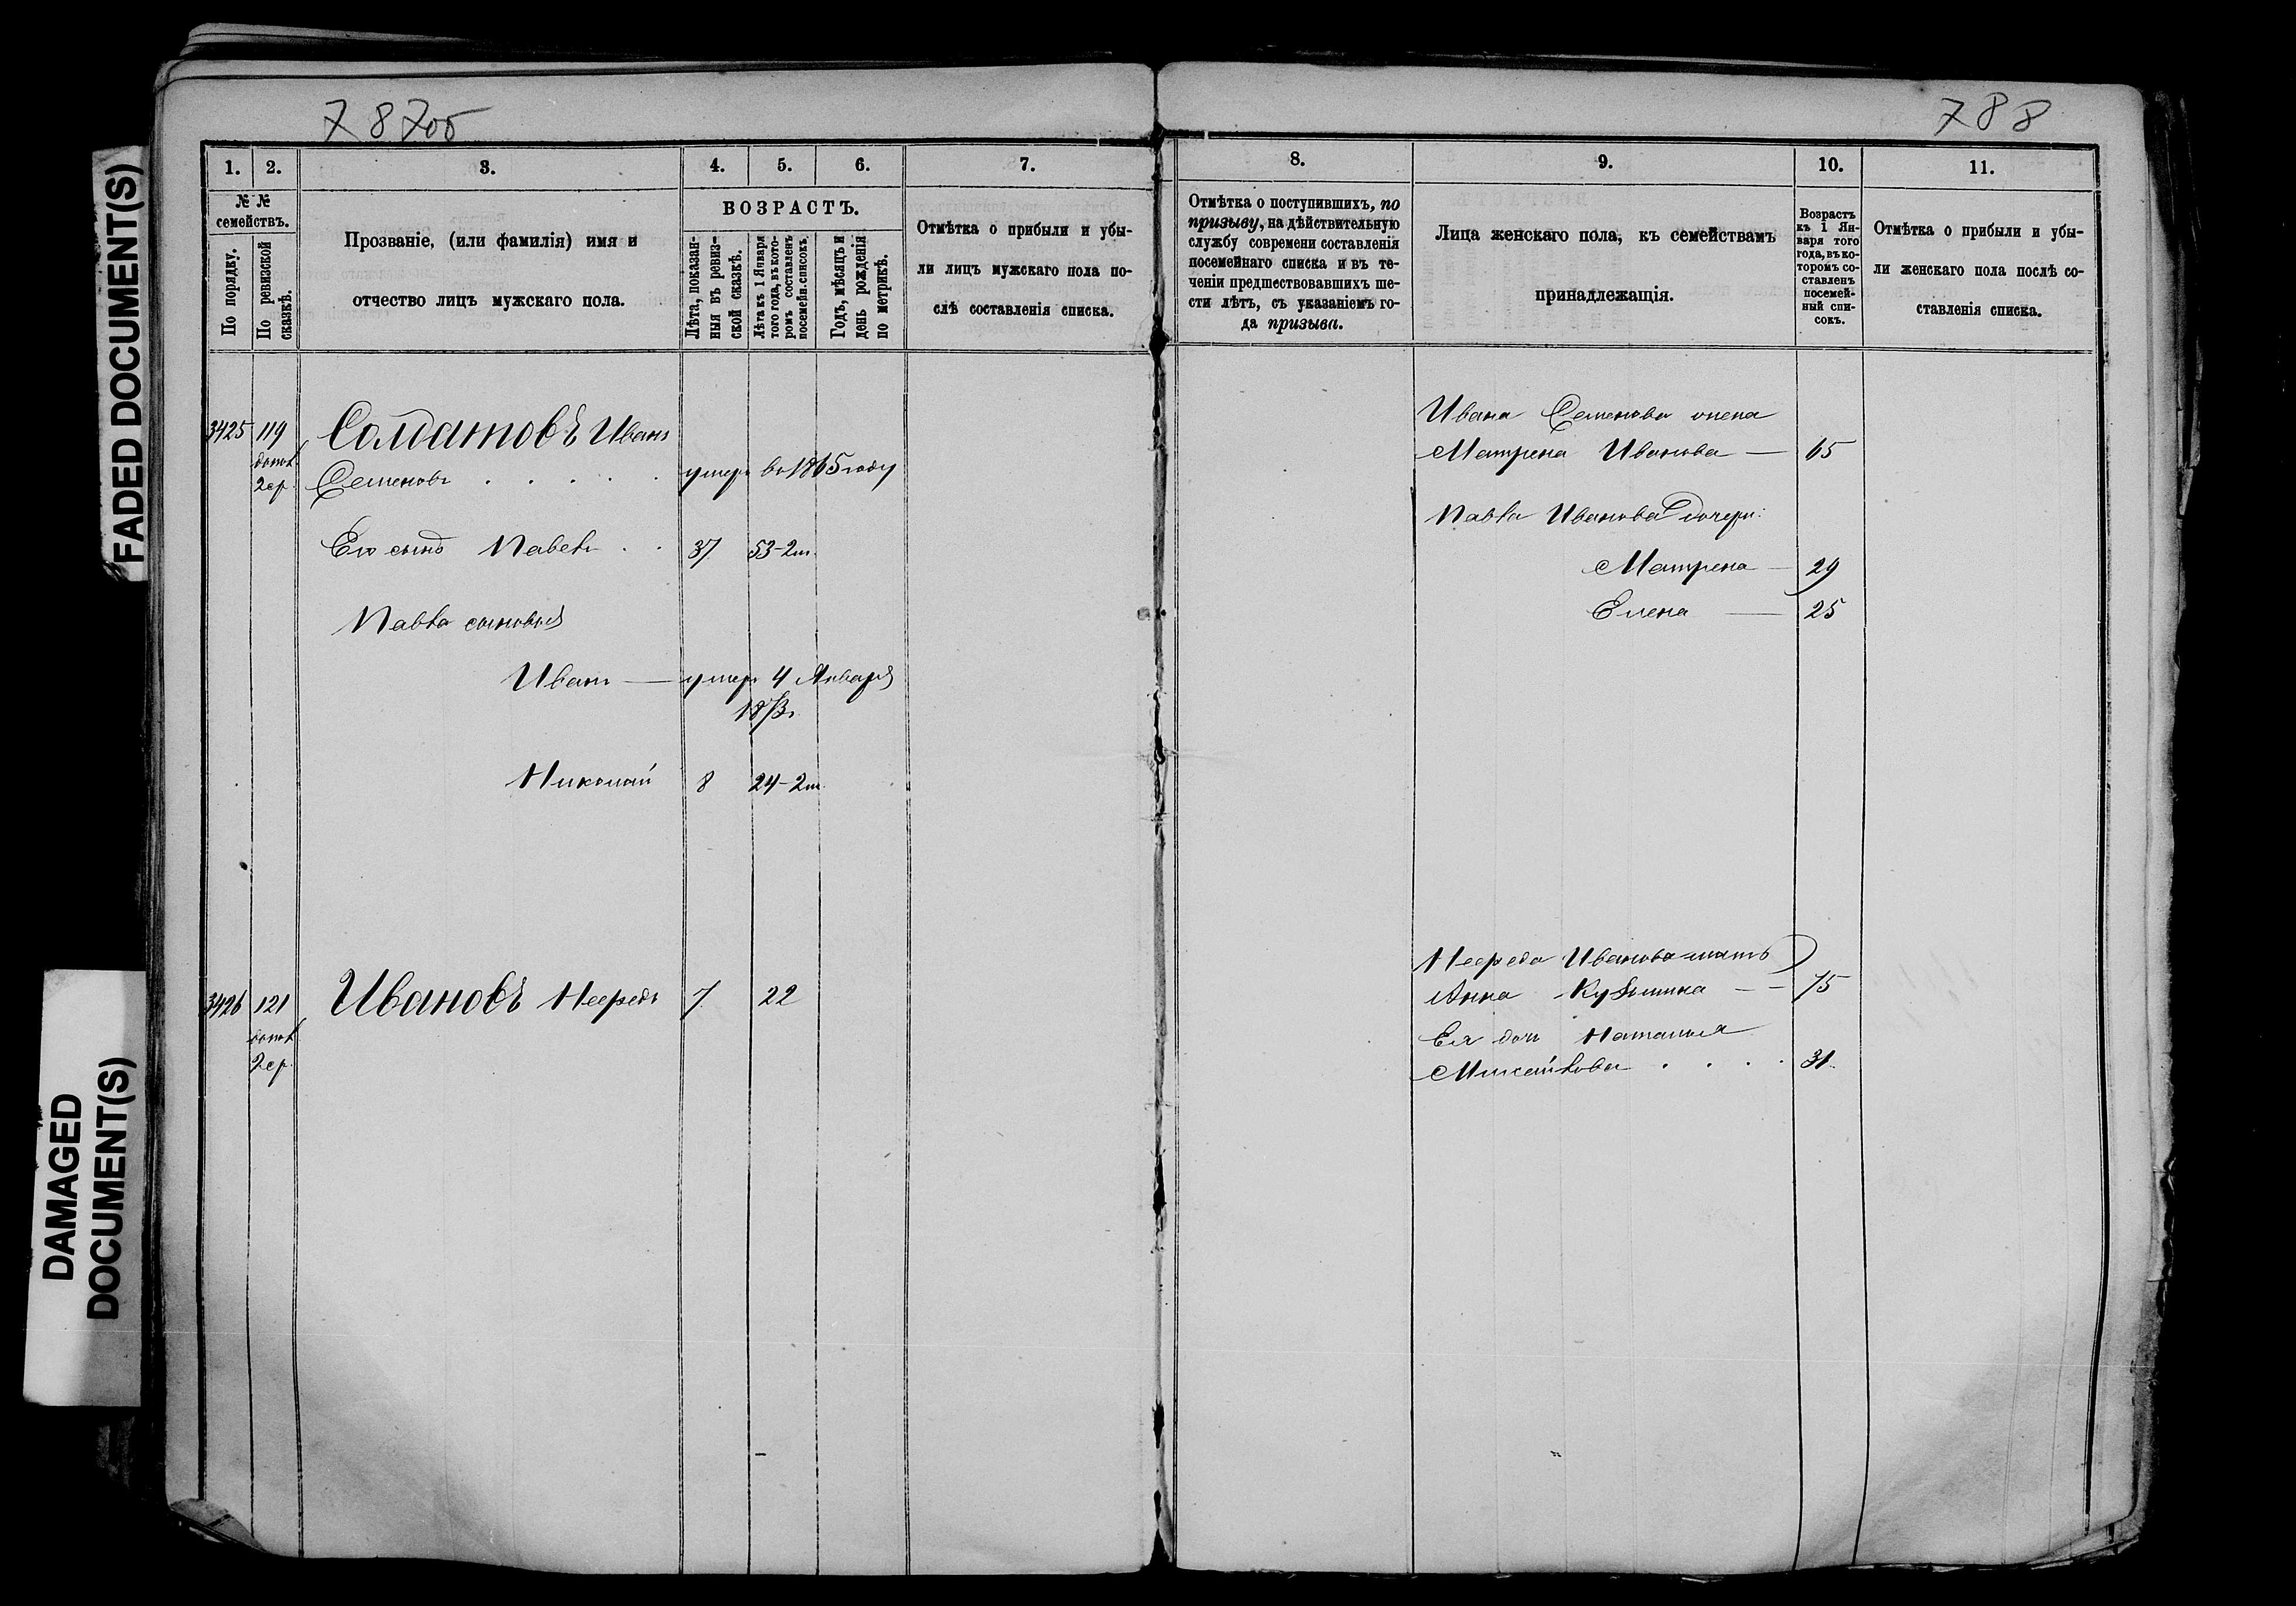 787об
788
FADED DOCUMENT(S)
DAMAGED
DOCUMENT(S)
1.
2.
3.
4.
5.
6.
7.
№ №
семействъ.
По порядку.
По ревизской
сказкѣ.
Прозваніе, (или фамилія) имя и
отчество лицъ мужскаго пола.
ВОЗРАСТЪ.
Лѣта, показан-
ныя въ ревиз-
ской сказкѣ.
Лѣта къ 1 Января
того года, въ кото-
ромъ составленъ
посемейн. списокъ.
Годъ, мѣсяцъ и
день рожденія
по метрикѣ.
Отмѣтка о прибыли и убы-
ли лицъ мужскаго пола по-
слѣ составленія списка.
3425 119 Солдатовъ Иванъ
допол.
2 ср. Семеновъ . . . . . умеръ въ 1865 году
Его сынъ Павелъ . . 37 53-2м.
Павла сыновья
Иванъ — умеръ 4 Января
1873г.
Николай 8 24-2м.
3426 121 Ивановъ 7 22
допол
2 ср.
8.
9.
10.
11.
Отмѣтка о поступившихъ, по
призыву, на дѣйствительную
службу современи составленія
посемейнаго списка и въ те-
ченіи предшествовавшихъ ше-
сти лѣтъ, съ указаніемъ го-
да призыва.
Лица женскаго пола, къ семействамъ
принадлежащія.
Возрастъ
къ 1 Ян-
варя того
года, въ ко-
торомъ со-
ставленъ
посемей-
ный спи-
сокъ.
Отмѣтка о прибыли и убы-
ли женскаго пола послѣ со-
ставленія списка.
Ивана Семенова жена
Матрена Иванова — 65
Павла Иванова дочери:
Матрена — 29
Елена — 25
Иванова мать
Анна Кузьмина — — 75
Ея дочь Наталья
Михайлова . . . . 31